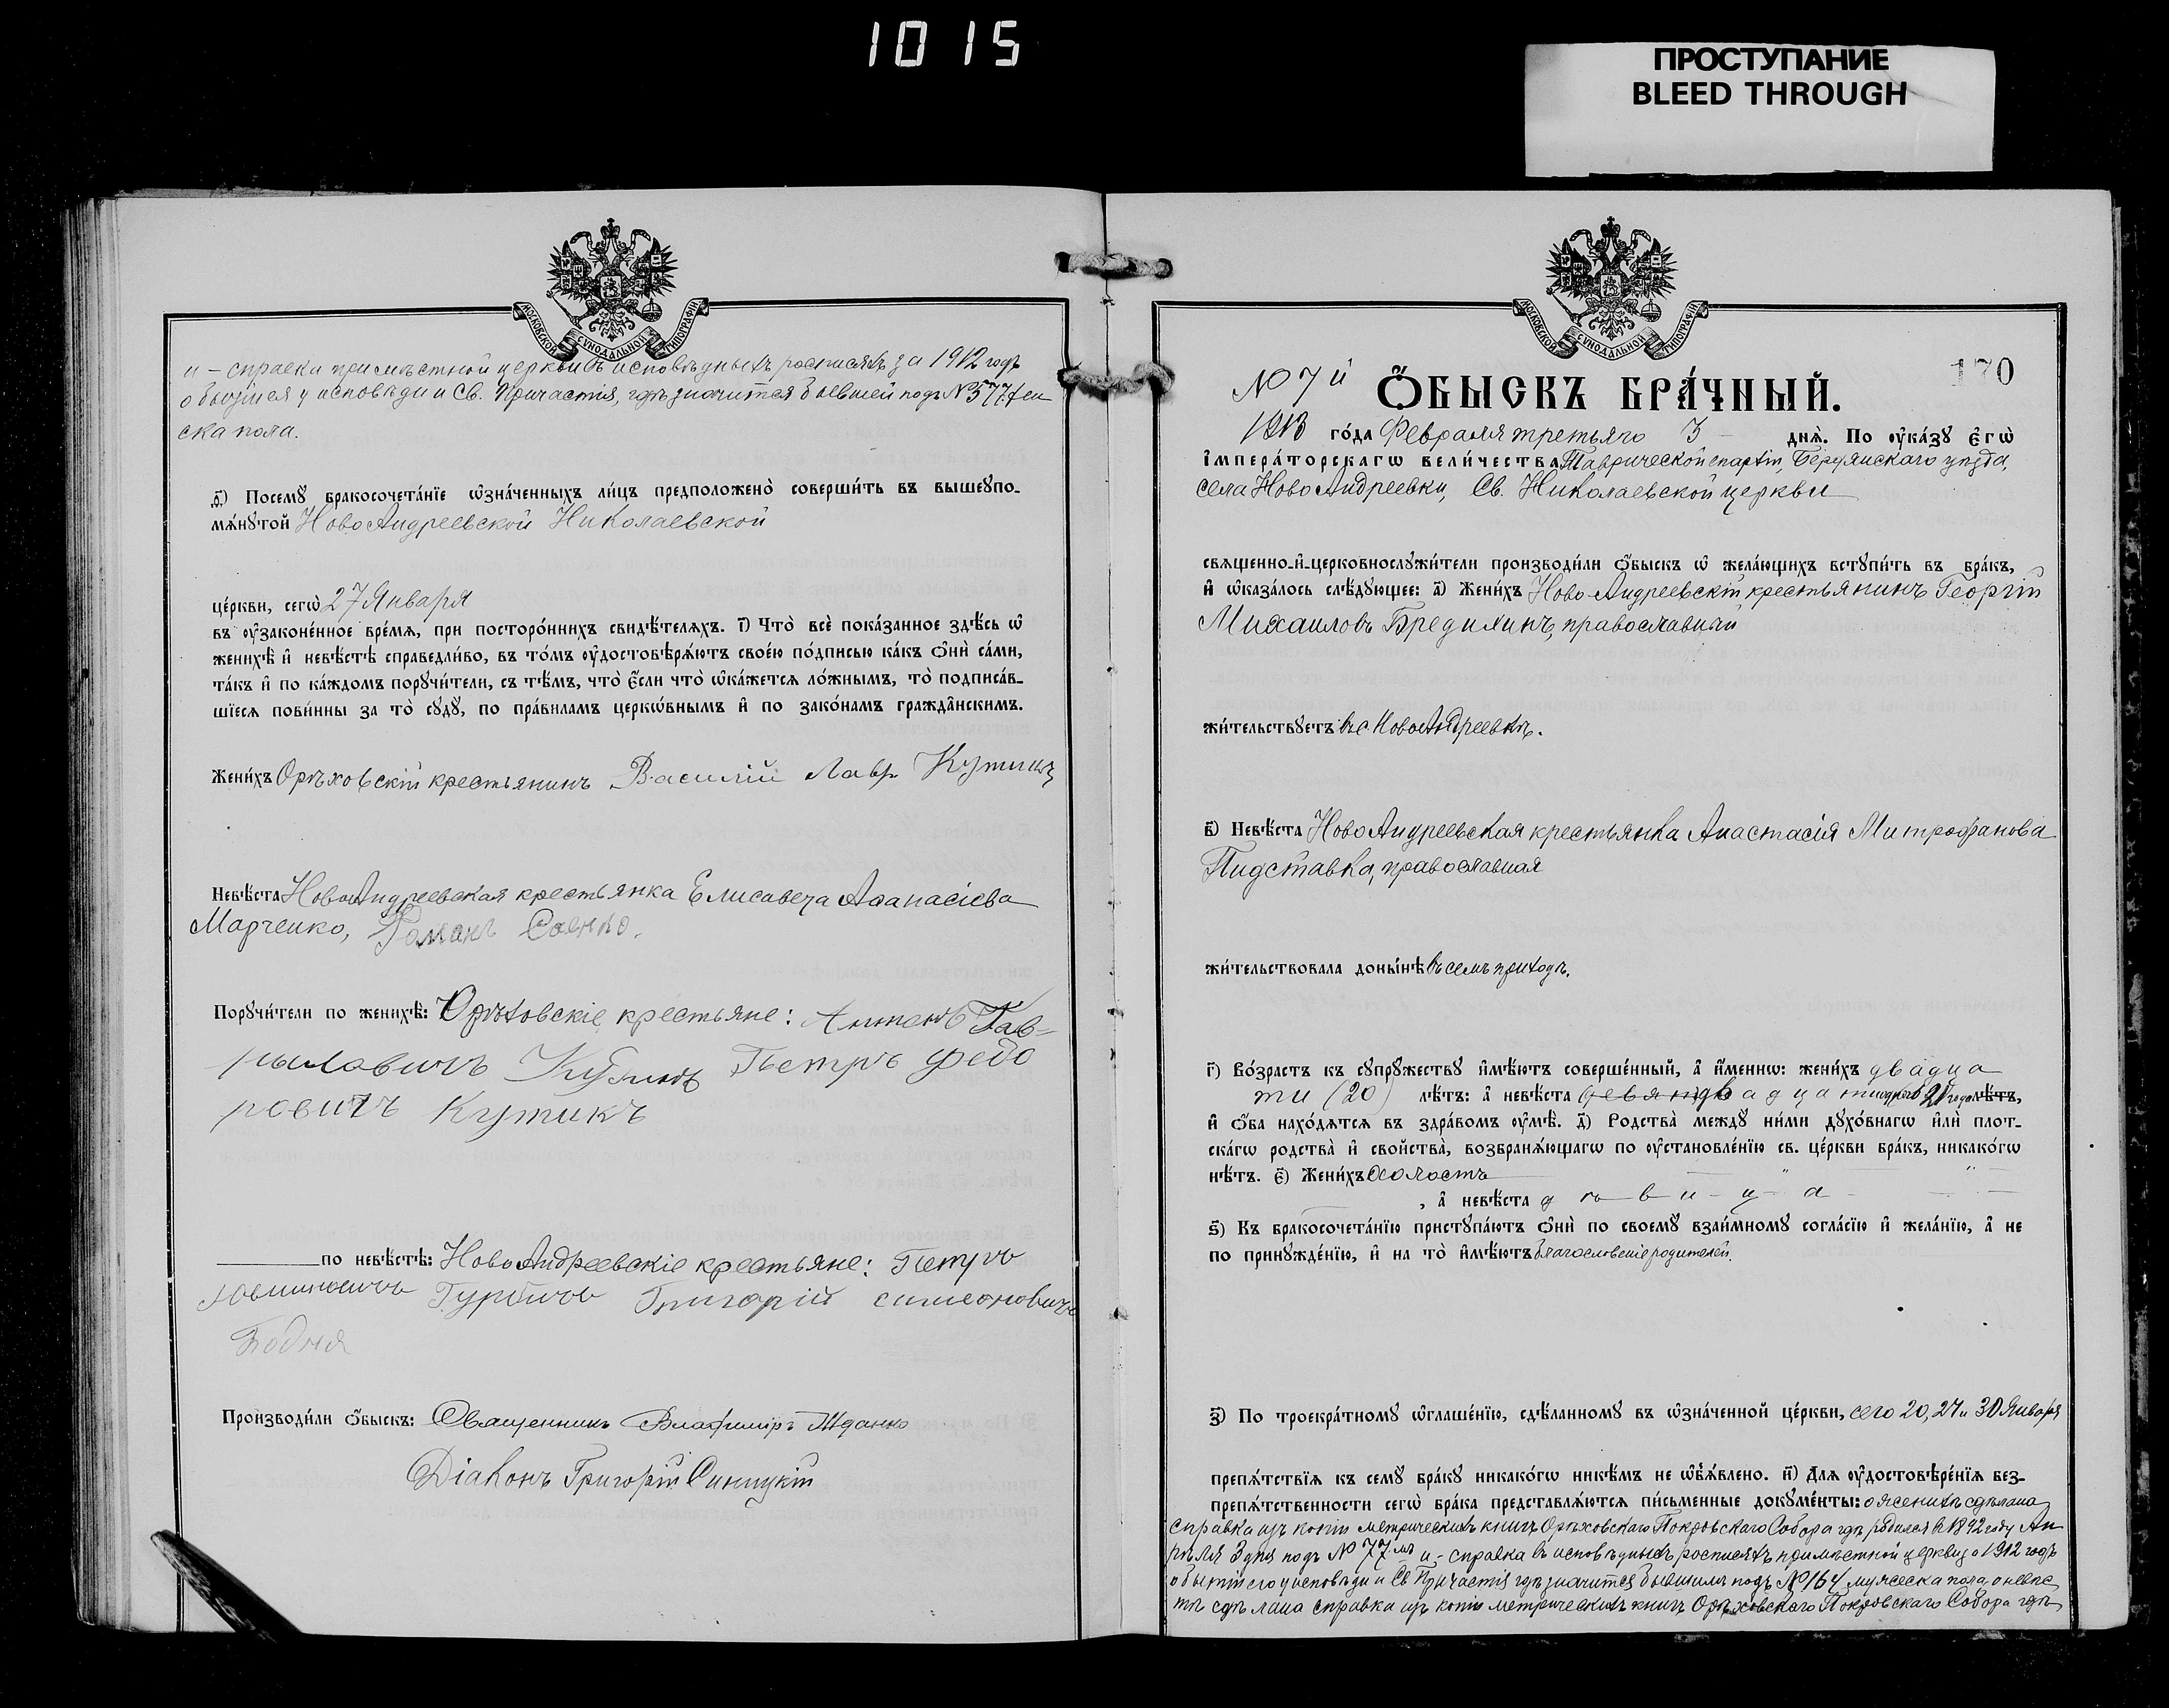 1015
ПРОСТУПАНИЕ
BLEED THROUGH
МОСКОВСКОЙ СѴНОДАЛЬНОЙ ТИПОГРАФІИ
и – справки при мѣстной церкви въ исповѣдныхъ росписяхъ за 1912 годъ
о бытіи ея у исповѣди и Св. Причастія, гдѣ значится бывшей подъ № 577 жен
ска пола.
ѳ҃) Посемꙋ бракосочета́нїе ѡ҆зна́ченныхъ ли́цъ предположено̀ соверши́ть въ вышеупо-
мѧ́нꙋтой Ново Андреевской Николаевской
це́ркви, сегѡ̀ 27 Января
въ ᲂу҆законе́нное вре́мѧ, при посторо́ннихъ свидѣ́телѧхъ. і҃) Что̀ всѐ пока́занное здѣ́сь ѡ҆
женихѣ̀ и҆ невѣ́стѣ справедли́во, въ то́мъ ᲂу҆достовѣрѧ́ютъ свое́ю по́дписью ка́къ ѻ҆нѝ са́ми,
та́къ и҆ по ка́ждомъ порꙋчи́тели, съ тѣ́мъ, что̀ є҆́сли что̀ ѡ҆ка́жетсѧ ло́жнымъ, то̀ подписа́в-
шїесѧ пови́нны за то̀ сꙋдꙋ̀, по пра́виламъ церкѡ́внымъ и҆ по зако́намъ гражда̂нскимъ.
Жени́хъ Орѣховскій крестьянинъ Василій Лавр. Кутикъ
Невѣ́ста НовоАндреевская крестьянка Елисавета Аѳанасіева
Марченко, Романъ Саенко.
Порꙋчи́тели по женихѣ̀: Орѣховскіе крестьяне: Антонъ Гав-
риловичъ Кутикъ Петръ Федо
ровичъ Кутикъ
по невѣ́стѣ: НовоАндреевскіе крестьяне: Петръ
Григорій симеоновичъ
Бодня
Производи́ли ѻ҆́быскъ: Священникъ Владиміръ Жданко
Діаконъ Григорій Синицкій
170
№ 7й
Ѻ҆́БЫСКЪ БРА́ЧНЫЙ.
МОСКОВСКОЙ СѴНОДАЛЬНОЙ ТИПОГРАФІИ
1913 го́да Февраля третьяго 3 днѧ̀. По ᲂу҆ка́зꙋ Є҆гѡ̀
І҆мпера́торскагѡ вели́чества Таврической епархіи, Бердянскаго уѣзда,
села Ново Андреевки, Св. Николаевской церкви
свѧщенно-и҆-церковнослꙋжи́тели производи́ли ѻ҆́быскъ ѡ҆ жела́ющихъ встꙋпи́ть въ бра́къ,
и҆ ѡ҆каза́лось слѣ́дꙋющее: а҃) Жени́хъ Ново-Андреевскій крестьянинъ Георгій
Михаиловъ Бредихинъ, православный
жи́тельствꙋетъ въ с. НовоАндреевкѣ.
в҃) Невѣ́ста Ново Андреевская крестьянка Анастасія Митрофанова
Пидставка, православная
жи́тельствовала доны́нѣ въ семъ приходѣ.
г҃) Во́зрастъ къ сꙋпрꙋ́жествꙋ и҆мѣ́ютъ соверше́нный, а҆ и҆́меннѡ: жени́хъ двадца
ти (20) лѣ́тъ: а҆ невѣ́ста двадцати одного 21 года лѣ́тъ,
и҆ ѻ҆́ба нахо́дѧтсѧ въ здра́вомъ ᲂу҆мѣ̀. д҃) Родства̀ междꙋ̀ ни́ми дꙋхо́внагѡ и҆лѝ плот-
ска́гѡ родства̀ и҆ сво́йства, возбранѧ́ющагѡ по ᲂу҆становле́нїю св. це́ркви бра́къ, никако́гѡ
нѣ́тъ. є҃) Жени́хъ холостъ
, а҆ невѣ́ста дѣвица
ѕ҃) Къ бракосочета́нїю пристꙋпа́ютъ ѻ҆нѝ по своемꙋ̀ взаи́мномꙋ согла́сїю и҆ жела́нїю, а҆ не
по принꙋжде́нїю, и҆ на то̀ и҆мѣ́ютъ благословеніе родителей.
з҃) По троекра́тномꙋ ѡ҆глаше́нїю, сдѣ́ланномꙋ въ ѡ҆зна́ченной це́ркви, сего 20, 27 и 30 Января
препѧ́тствїѧ къ семꙋ̀ бра́кꙋ никако́гѡ никѣ́мъ не ѡ҆б̾ѧ́влено. и҃) Длѧ ᲂу҆достовѣре́нїѧ без-
препѧ́тственности сегѡ̀ бра́ка представлѧ́ютсѧ пи́сьменные докꙋме́нты: о женихѣ сдѣлана
справка изъ копіи метрическихъ книгъ Орѣховскаго Покровскаго Собора гдѣ родился въ 1892 году Ап
рѣля 3 дня подъ № 77мъ и – справка въ исповѣдныхъ росписяхъ при мѣстной церкви за 1912 годъ
о бытіи его у исповѣди и Св Причастія гдѣ значится бывшимъ подъ № 164 мужеска пола, о невѣс
тѣ сдѣлана справка изъ копіи метрическихъ книгъ Орѣховскаго Покровскаго Собора гдѣ